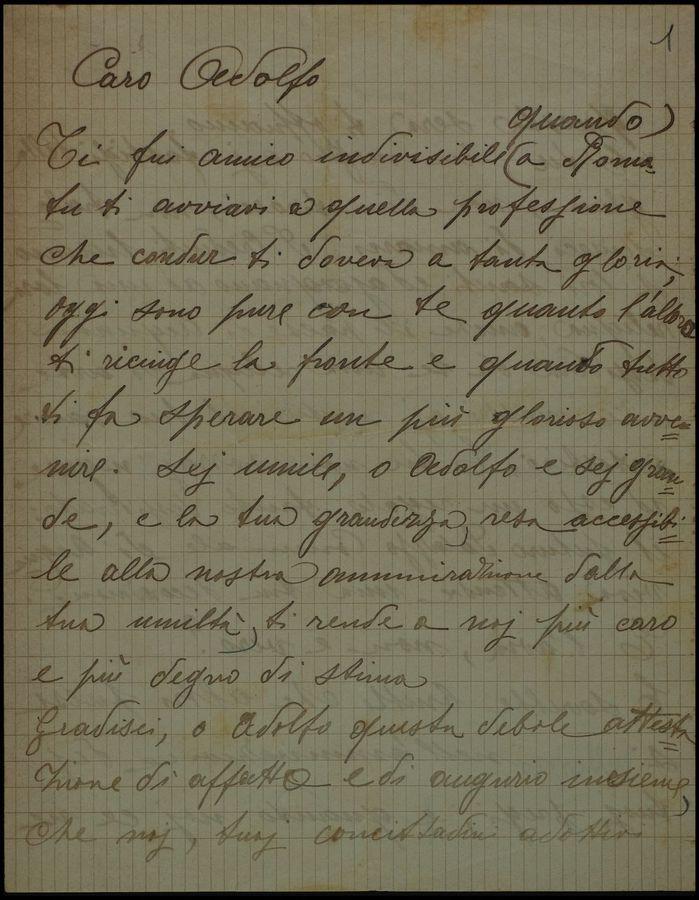 1
Caro Adolfo
quando)
Ti fui amico indivisibile (a Roma
tu ti avviavi a quella professione
che condur ti doveva a tanta gloria;
oggi sono pure con te quanto l'alloro
ti ricinge la fronte e quando tutto
ti fa sperare un più glorioso avve=
nire. Sej umile, o Adolfo e sej gran=
de, e la tua grandezza, resa accessibi=
le alla nostra ammirazione dalla
tua umiltà, ti rende a noj più caro
e più degno di stima
Gradisci, o Adolfo questa debole attesta=
zione di affetto e di augurio insieme,
che noj, tuoj concittadini adottivi